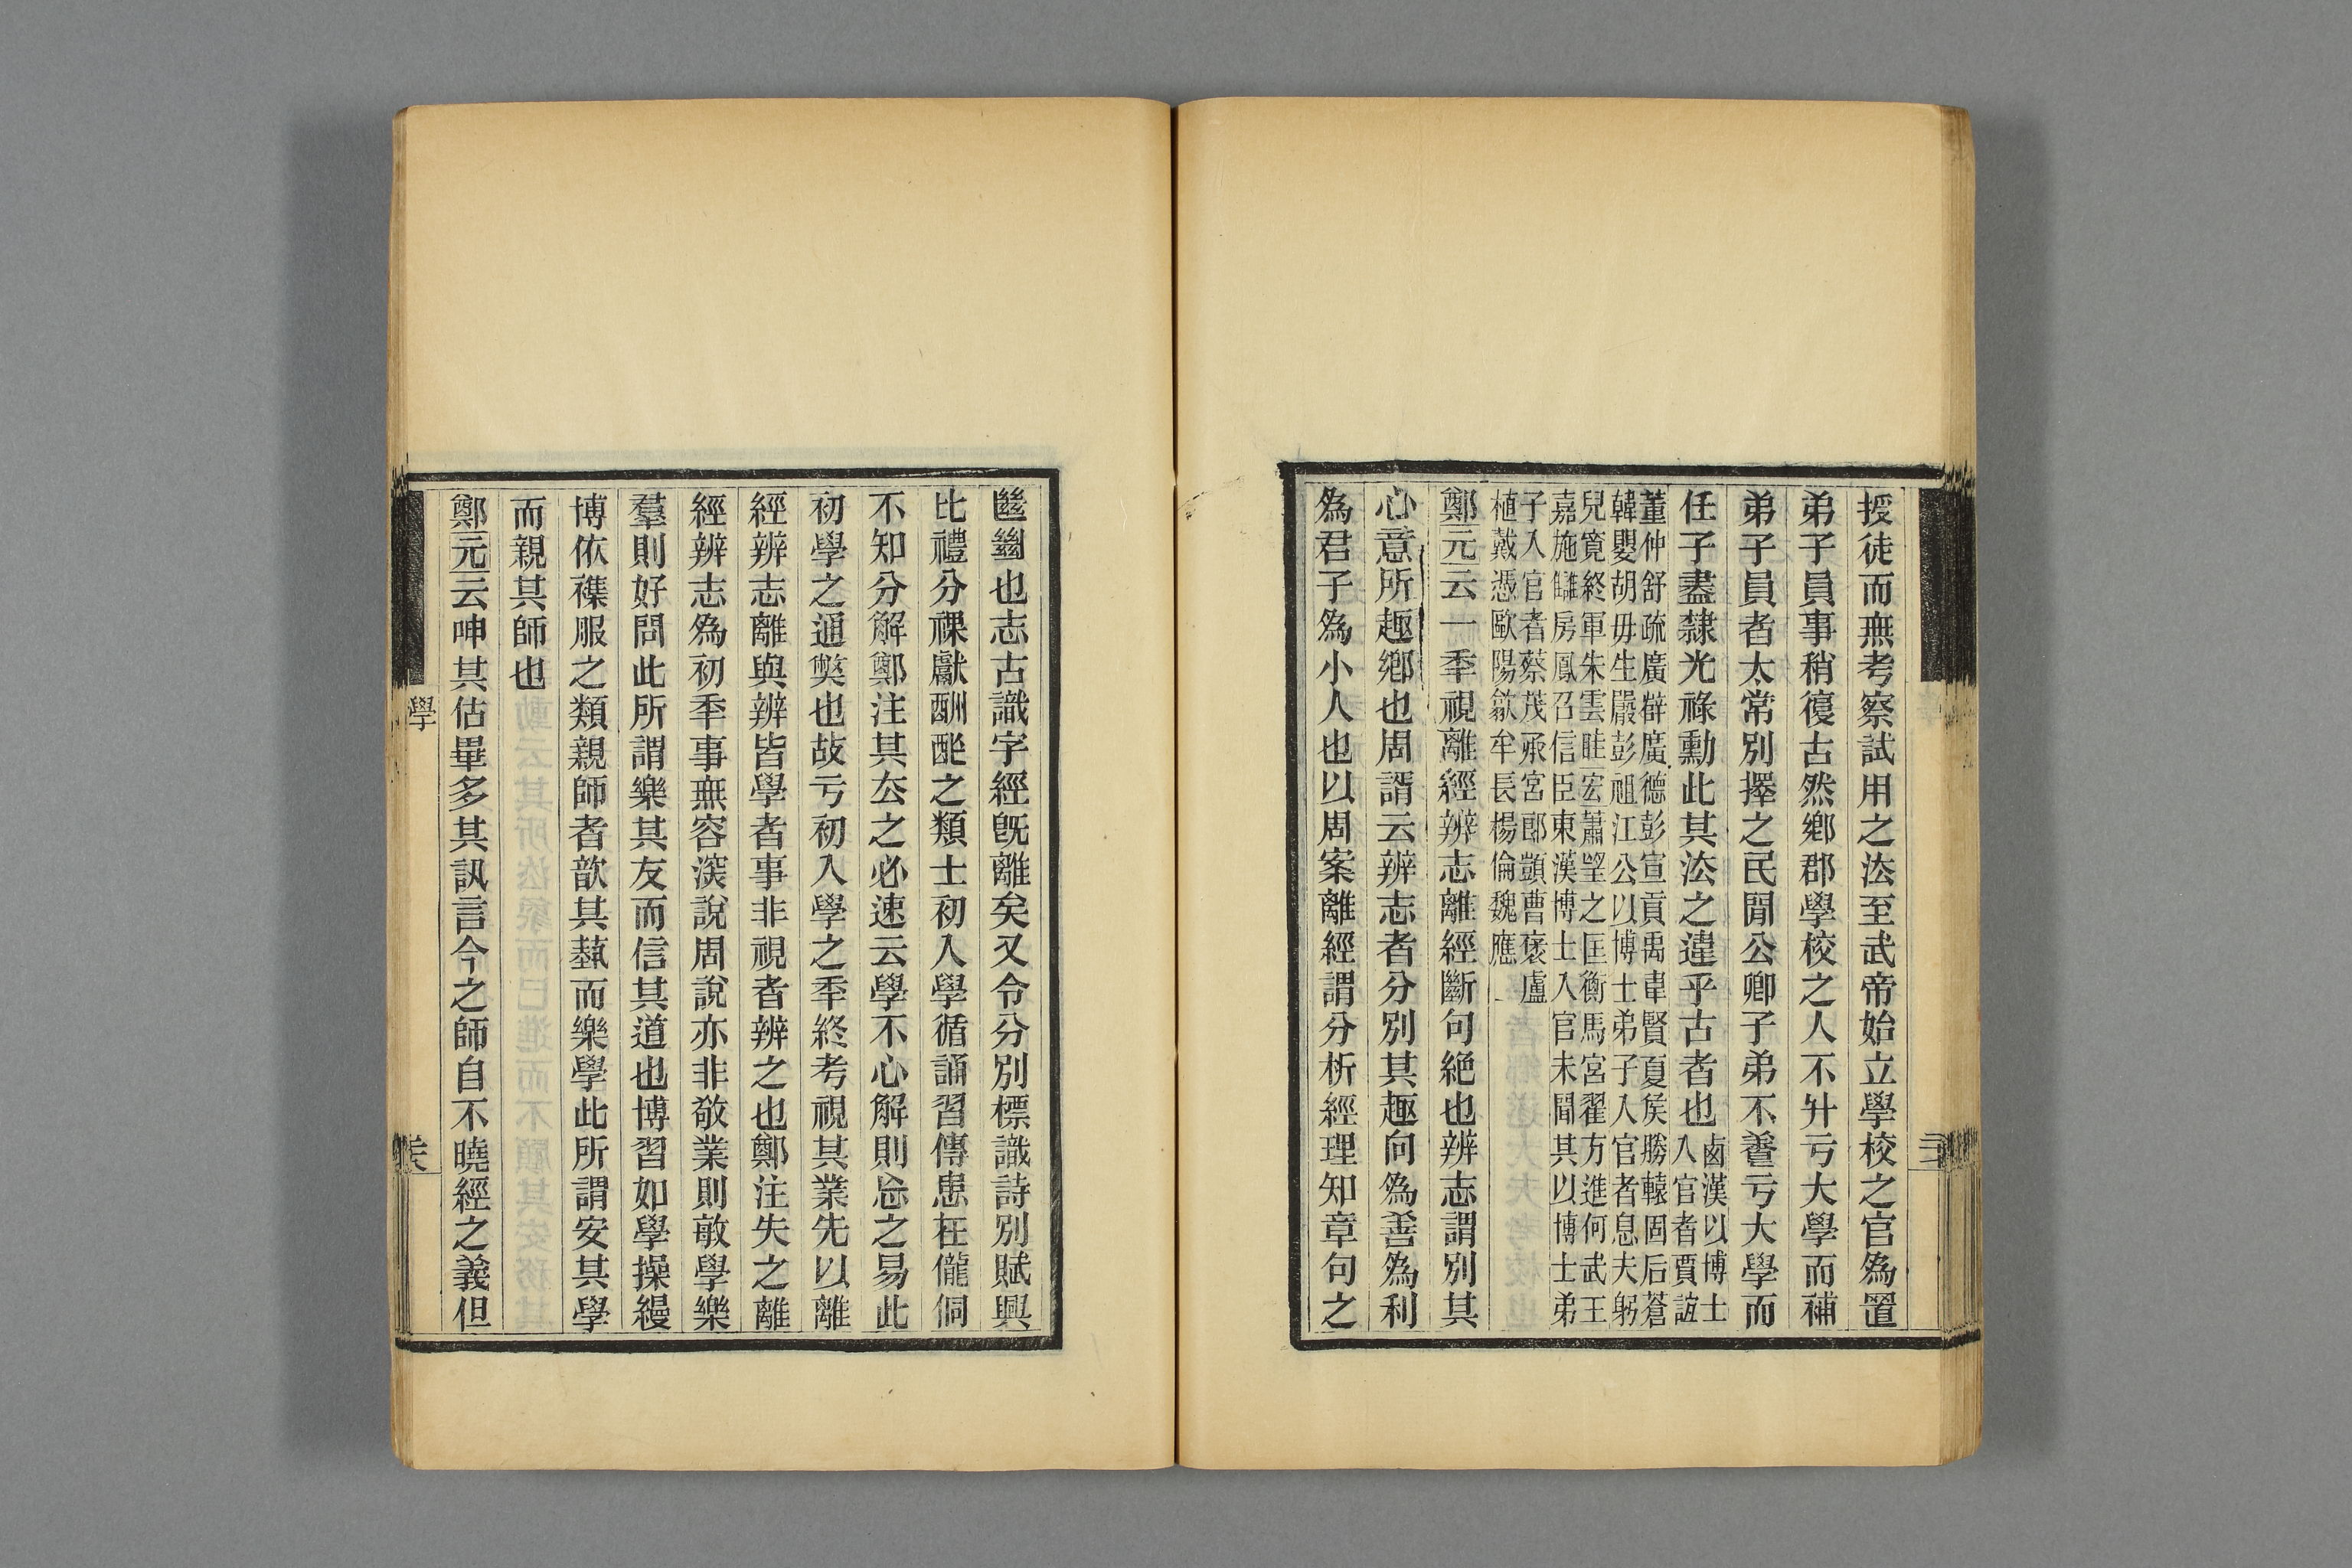 授徒而無考察試用之法至武帝始立學校之官為置
弟子員事稍復古然鄉郡學校之人不升亏大學而補
弟子員者太常別擇之民閒公卿子弟不養亏大學而
任子盡隸光祿勳此其法之違乎古者也鹵漢以博士
入官者賈誼
董仲舒疏廣薛廣德彭宣貢禹韋賢夏矦勝轅固后蒼
韓嬰胡毋生嚴彭祖江公以博士弟子入官者息夫躬
兒寬終軍朱雲眭宏蕭望之匡衡馬宮翟方進何武王
嘉施讎房鳳召信臣東漢博士入官未聞其以博士弟
子入官者蔡茂承宮郎顗曹褒盧
植戴憑歐陽歙牟長楊倫魏應
鄭元云一秊視離經辨志離經斷句絕也辨志謂別其
心意所趣鄉也周諝云辨志者分別其趣向為善為利
為君子為小人也以周案離經謂分析經理知章句之
也志古識字經旣離矣又令分別標識詩別賦興
比禮分祼獻酬酢之類士初入學循誦習傳患在儱侗
不知分解鄭注其厺之必速云學不心解則忘之易此
初學之通獘也故亏初入學之秊終考視其業先以離
經辨志離與辨皆學者事非視者辨之也鄭注失之離
經辨志為初秊事無容深說周說亦非敬業則敏學樂
羣則好問此所謂樂其友而信其道也博習如學操縵
博依襍服之類親師者歆其蓺而樂學此所謂安其學
而親其師也
鄭元云呻其佔畢多其訊言今之師自不曉經之義但
學